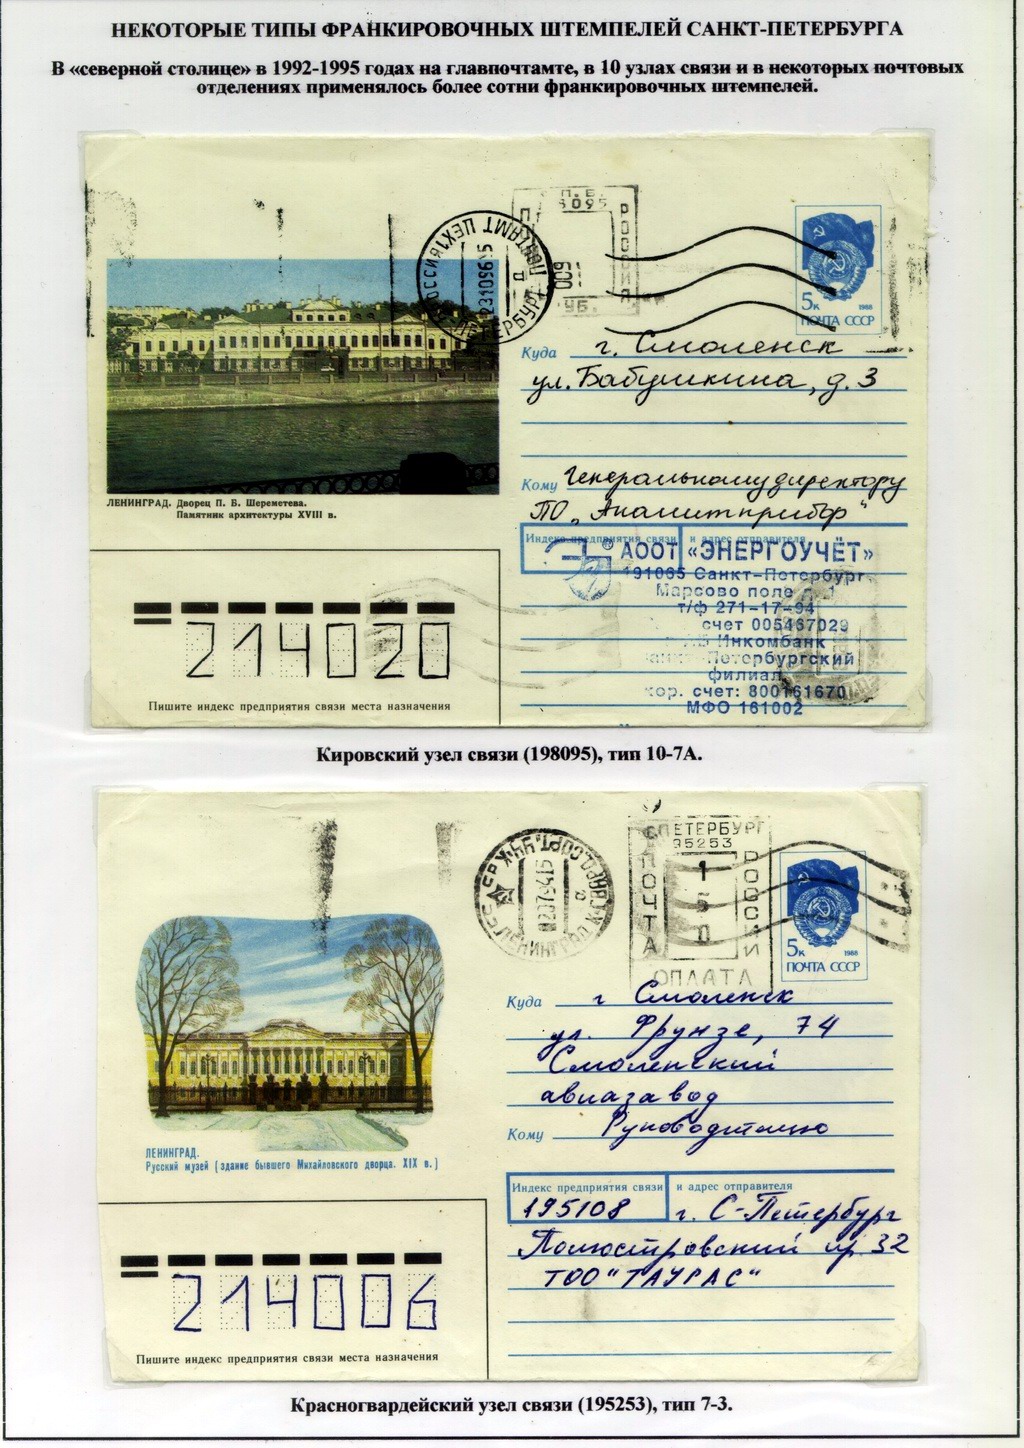 НЕКОТОРЫЕ ТИПЫ ФРАНКИРОВОЧНЫХ ШТЕМПЕЛЕЙ САНКТ-ПЕТЕРБУРГА
В «северной столице» в 1992-1995 годах на главпочтамте, в 10 узлах связи и в некоторых почтовых
отделениях применялось более сотни франкировочных штемпелей.
РОССИЯ
600
УБ.
5к 1988
ПОЧТА СССР
Куда г. Смоленск
ул. Бабушкина, д. 3
Кому Генеральному директору
ПО „Аналитприбор“
ЛЕНИНГРАД. Дворец П. Б. Шереметева.
Памятник архитектуры XVIII в.
Индекс предприятия связи и адрес отправителя
АООТ «ЭНЕРГОУЧЁТ»
191065 Санкт-Петербург
Марсово поле
т/ф 271-17-94
счет 005467029
Инкомбанк
Петербургский
филиал
кор. счет: 800161670
МФО 161002
214020
Пишите индекс предприятия связи места назначения
Кировский узел связи (198095), тип 10-7А.
ПЕТЕРБУРГ
95253
ПОЧТА
РОССИИ
ОПЛАТА
5к 1988
ПОЧТА СССР
ЛЕНИНГРАД
Куда г Смоленск
ул. Фрунзе, 74
Смоленский
авиазавод
Кому Руководителю
ЛЕНИНГРАД.
Русский музей (здание бывшего Михайловского дворца. XIX в.)
Индекс предприятия связи и адрес отправителя
195108 г. С-Петербург
Полюстровский пр 32
ТОО "ТАУРАС"
214006
Пишите индекс предприятия связи места назначения
Красногвардейский узел связи (195253), тип 7-3.